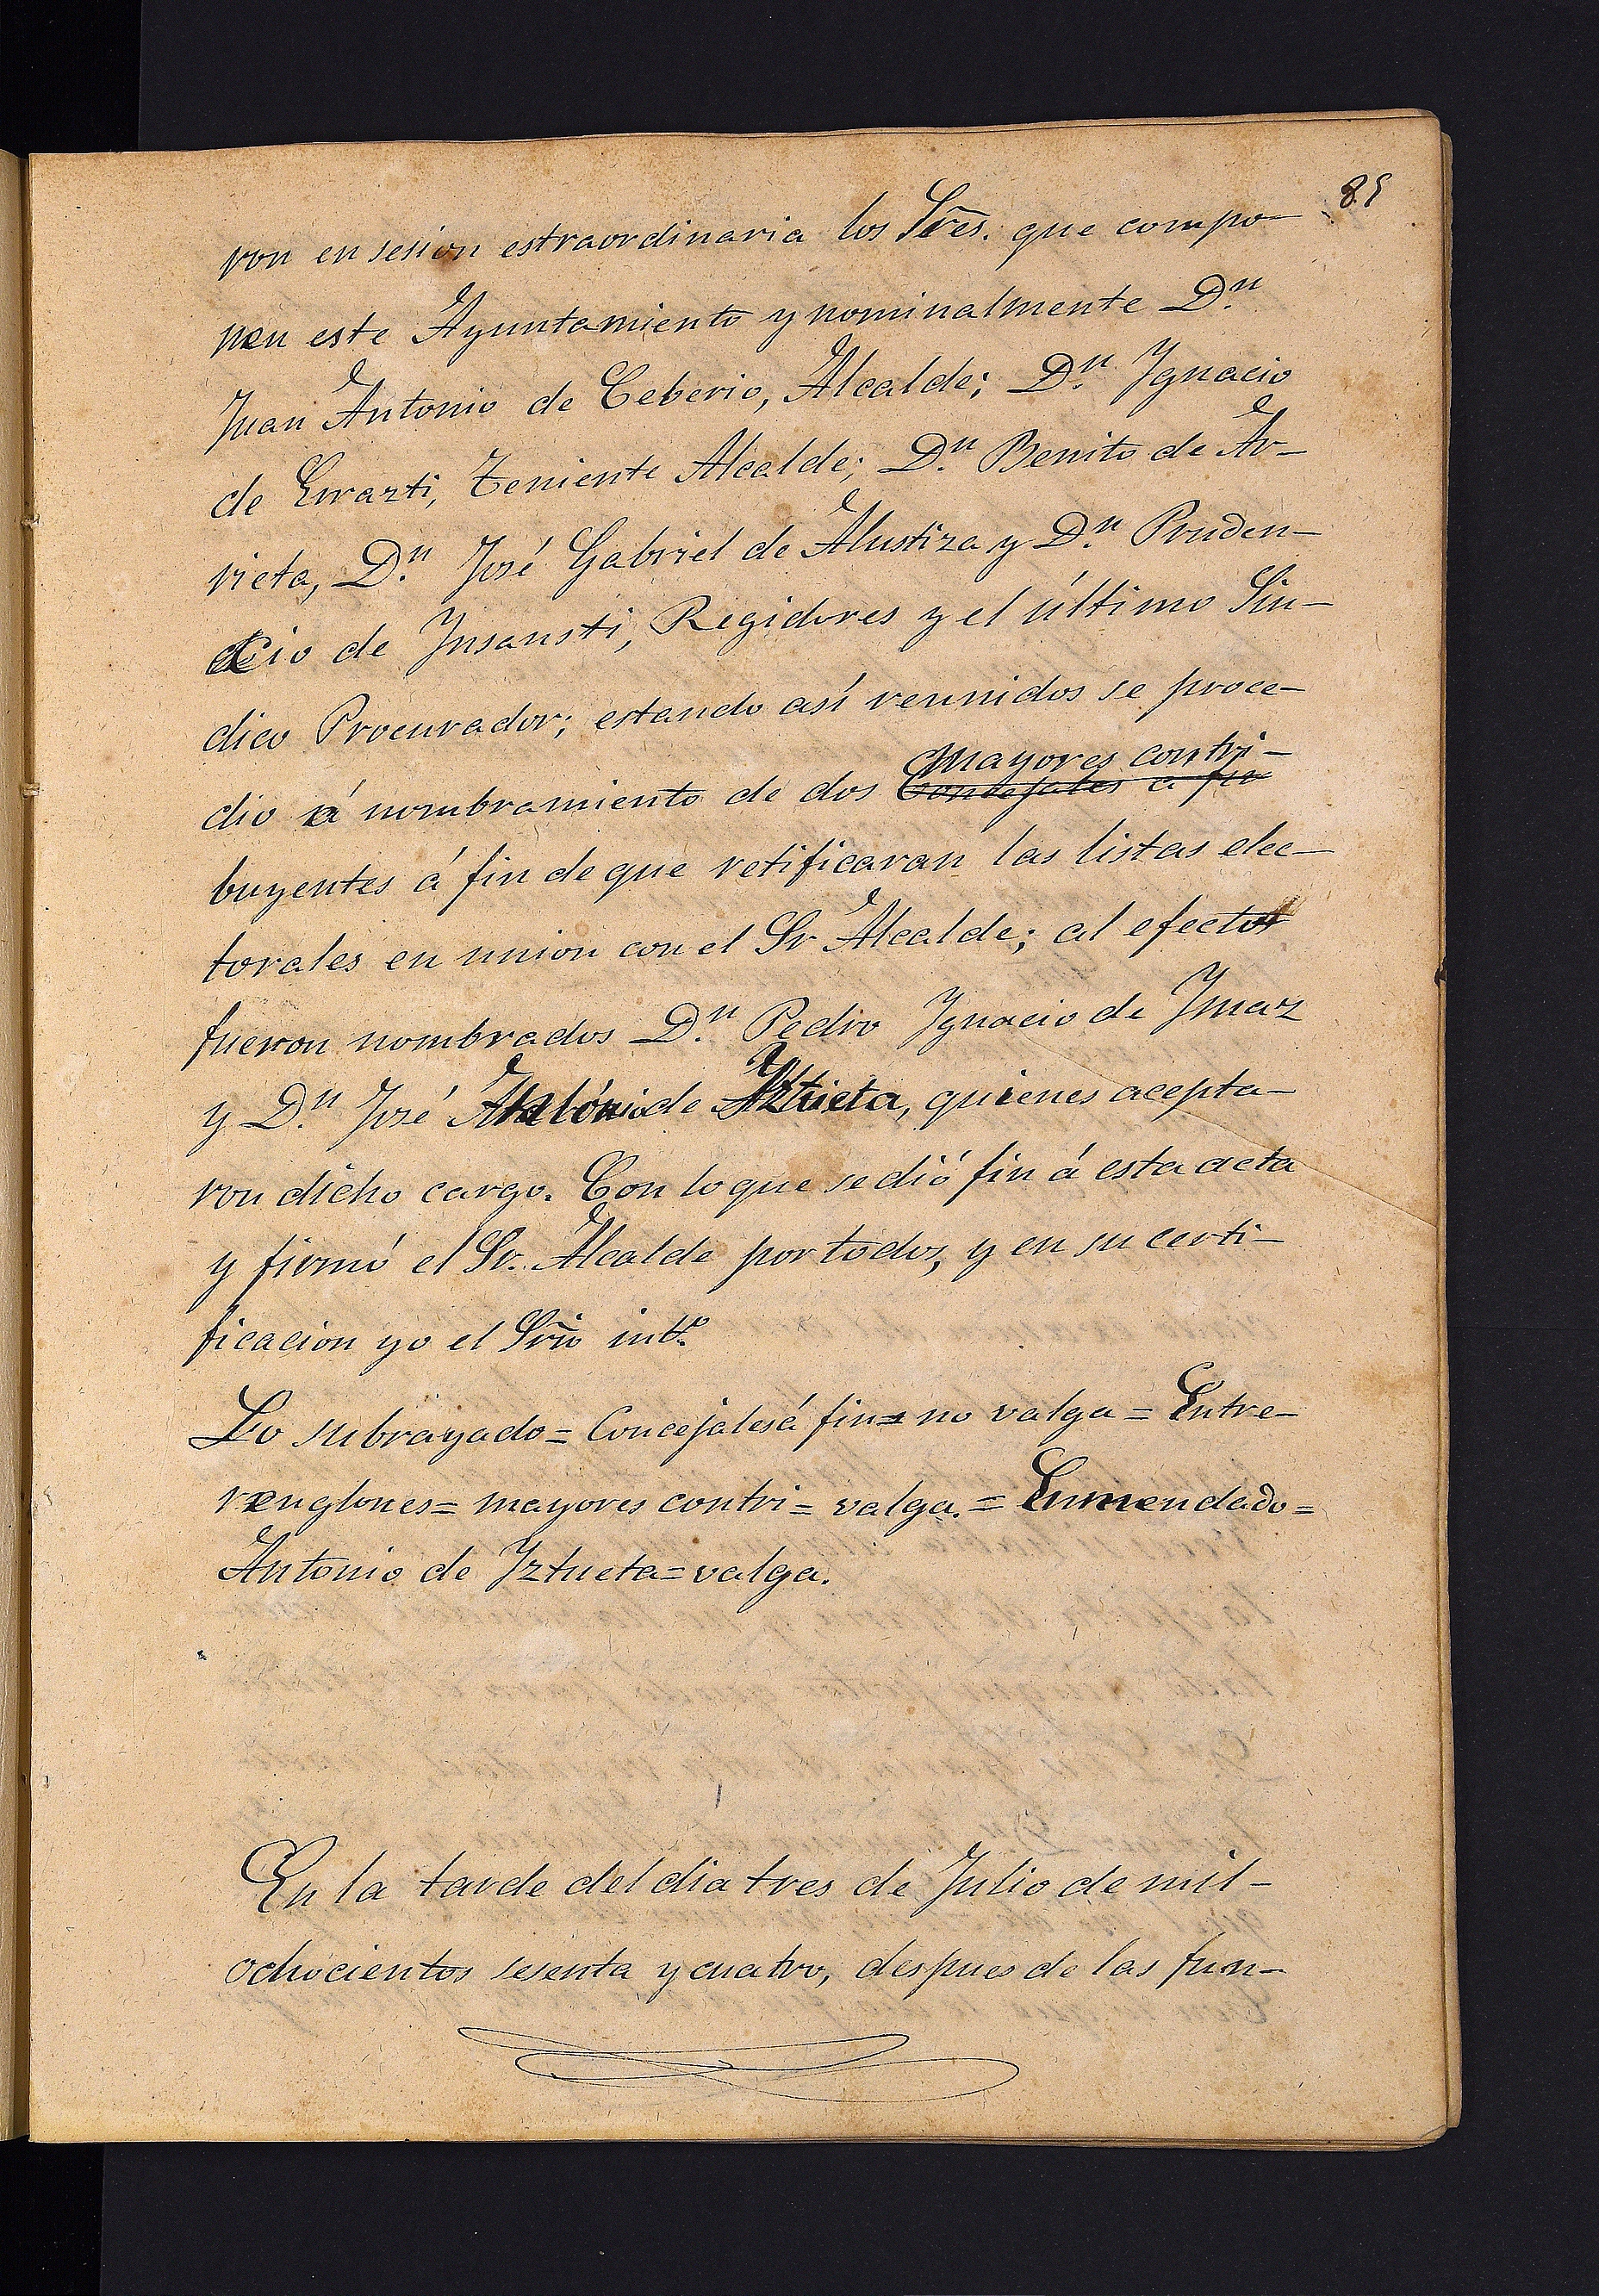 85
ron en sesion estraordinaria los Sres. que compo-
nen este Ayuntamiento y nominalmente D.n
Juan Antonio de Ceberio, Alcalde; D.n Ygnacio
de Errazti, Teniente Alcalde; D.n Benito de Ar-
rieta, D.n José Gabriel de Alustiza y D.n Pruden-
cio de Insausti, Regidores y el último Sin-
dico Procurador; estando así reunidos se proce-
mayores contri-
dio á nombramiento de dos Concejales a fin
buyentes á fin de que retificaran las listas elec-
torales en union con el Sr Alcalde; al efecto
fueron nombrados D.n Pedro Ygnacio de Ymaz
y D.n José Antonio de Yztueta, quienes acepta-
ron dicho cargo. Con lo que se dió fin á esta acta
y firmó el Sr. Alcalde por todos, y en su certi-
ficacion yo el Srio int.o
Lo subrayado = Concejales á fin = no valga = Entre-
renglones = mayores contri = valga. = Enmendado =
Antonio de Yztueta = valga.
En la tarde del dia tres de Julio de mil-
ochocientos sesenta y cuatro, despues de las fun-